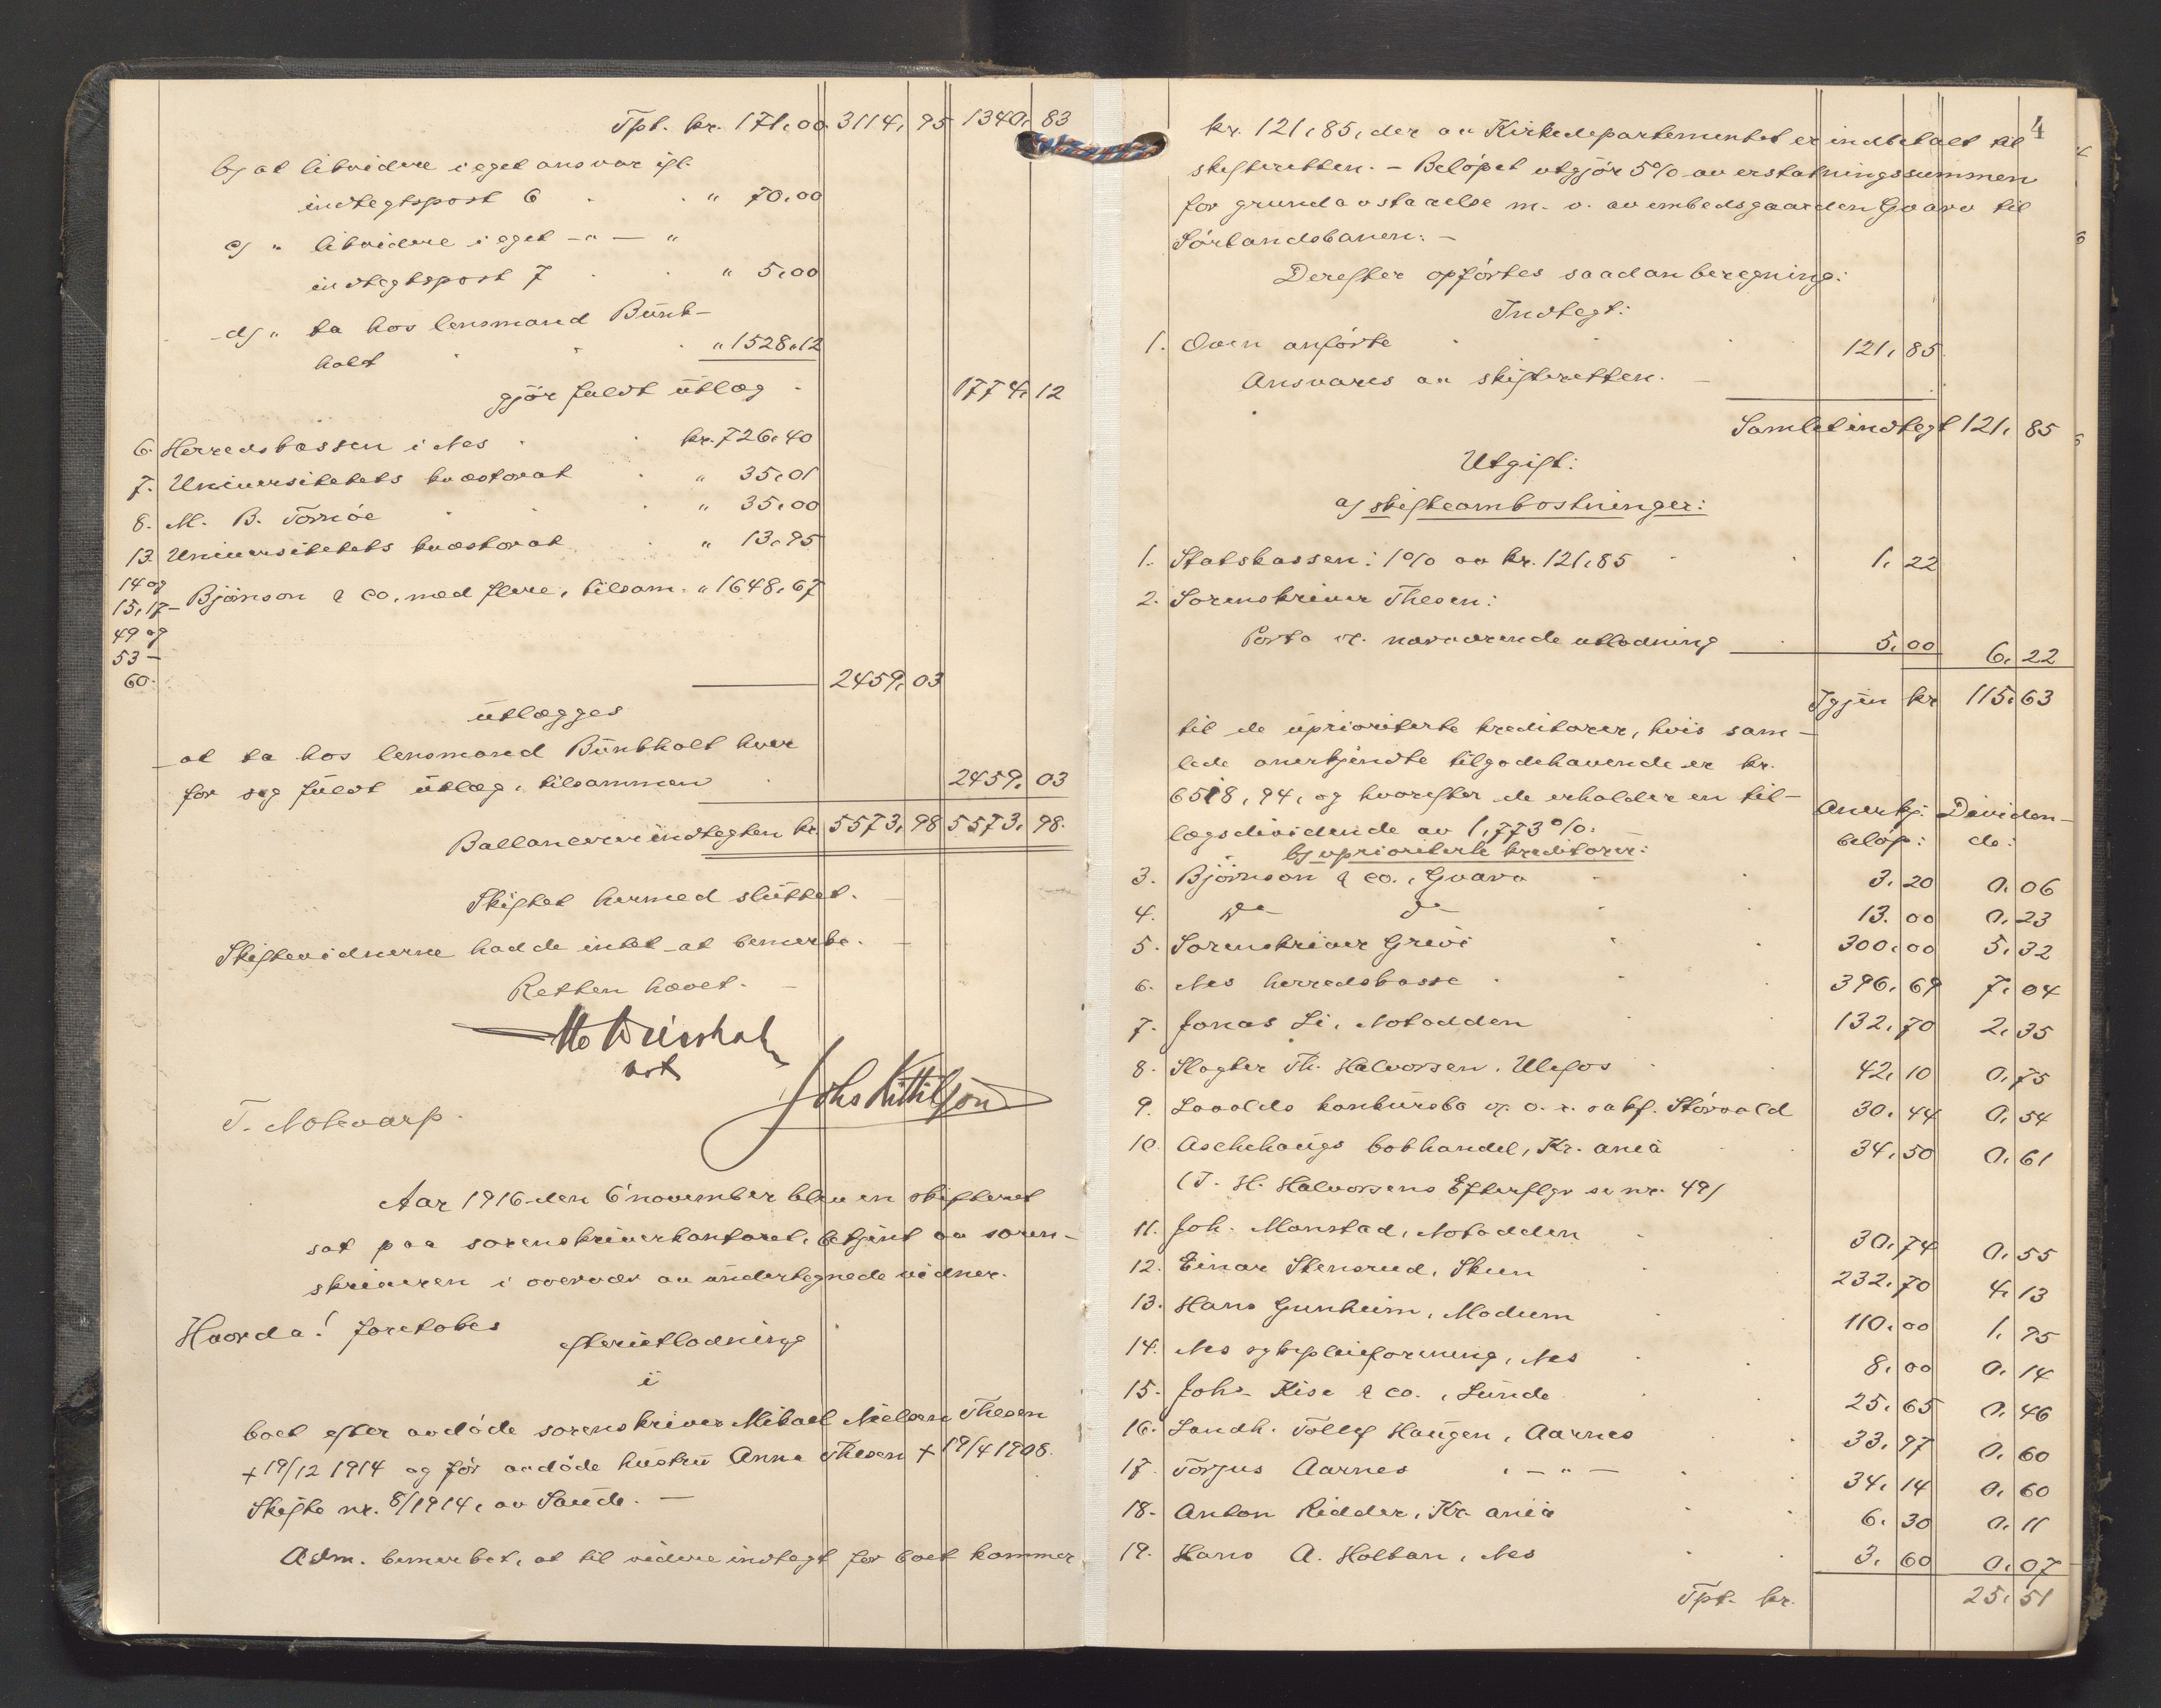 Tpt. kr. 171,00 3114,95 1340,83
b) at likvidere i eget ansvar ifl.
indtegtspost 6 . . " 70,00
c) " likvidere i eget -"- "
indtegtspost 7 . . " 5,00
d) " ta hos lensmand Bünk-
holt . . . " 1528,12
gjör fuldt ütlæg - 1774,12
6. Herredskassen i Nes . . kr. 726,40
7. Universitetets kvæstorat . " 35,01
8. M. B. Tornöe . . " 35,00
13. Universitetets kvæstorat . " 13,95
14 og
15, 17- Björnson & co. med flere, tilsam. " 1648,67
49 og
53 -
60.
2459,03
ütlægges
at ta hos lensmand Bünkholt hver
for sig füldt ütlæg, tilsammen . 2459,03
Ballancerer indtegten kr. 5573,98 5573,98.
Skiftet hermed slüttet. -
Skiftevidnerne hadde intet at bemerke. -
Retten hævet. -
Johs Kittilson
T. Notevarp.
Aar 1916 den 6' november blev en skifteret
sat paa sorenskriverkontoret, betjent av soren-
skriveren i overvær av ündertegnede vidner.
Hvorda! foretokes
efterütlodning
i
boet efter avdöde sorenskriver Mikael Nielsen Thesen
+ 19/12 1914 og för avdöde hüstrü Anna Thesen + 19/4 1908.
Skifte nr. 8/1914, av Saüde. -
Adm. bemerket, at til videre indtegt for boet kommer
4
kr. 121,85, der av Kirkedepartementet er indbetalt til
skifteretten. - Belöpet utgjör 5% av erstatningssummen
for grundavstaaelse m. v. av embedsgaarden Gvarv til
Sörlandsbanen: -
Derefter opförtes saadan beregning:
Indtegt:
1. Oven anförte . . . 121,85
Ansvares av skifteretten. -
Samlet indtegt 121,85
Utgift:
a) skifteomkostninger:
1. Statskassen: 1% av kr. 121,85 . . 1,22
2. Sorenskriver Thesen:
Porto v. nærværende utlodning . 5,00 6,22
Igjen kr 115,63
til de üprioriterte kreditorer, hvis sam-
lede anerkjendte tilgodehavende er kr.
6518,94, og hvorefter de erholder en til-
lægsdividende av 1,773%:
Anerkj. Dividen-
belöp: de:
b) uprioriterte kreditorer:
3. Björnson & co., Gvarv . . 3,20 0,06
4. do do . . 13.00 0,23
5. Sorenskriver Grivi . . 300,00 5,32
6. Nes herredskasse . . 396,69 7,04
7. Jonas Li, Notodden . . 132,70 2,35
8. Slagter Th. Halvorsen, Ulefos . . 42,10 0,75
9. Lavolds konkürsbo v. o. r. sakf. Störvold 30,44 0,54
10. Aschehaügs bokhandel, Kr. ania . . 34,50 0,61
(T. H. Halvorsens Efterflgr se nr. 49)
11. Joh. Manstad, Notodden . . 30,74 0,55
12. Einar Stensrud, Skien . . 232,70 4,13
13. Hans Gunheim, Modum . . 110,00 1,95
14. Nes sykepleieforening, Nes . . 8,00 0,14
15. Johs Kise & co., Lünde . . 25,65 0,46
16. Landh. Tollef Haügen, Aarnes . . 33,97 0,60
17. Torjus Aarnes , - " - . . 34,14 0,60
18. Anton Ridder, Kr. ania . . 6,30 0,11
19. Hans A. Holtan, Nes . . 3,60 0,07
Tpt. kr. 25,51